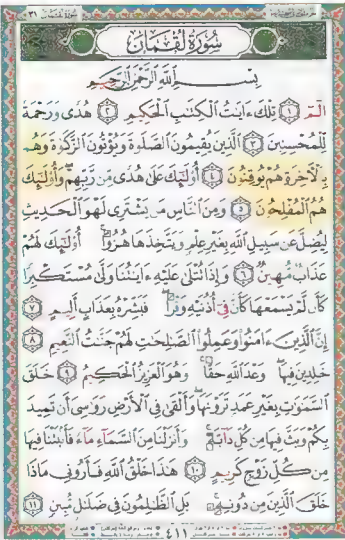 سُورَةُ لُقْمَانَ
بِسْمِ ٱللَّهِ ٱلرَّحْمَٰنِ ٱلرَّحِيمِ
الٓمٓ ١ تِلْكَ ءَايَٰتُ ٱلْكِتَٰبِ ٱلْحَكِيمِ ٢ هُدًى وَرَحْمَةً
لِّلْمُحْسِنِينَ ٣ ٱلَّذِينَ يُقِيمُونَ ٱلصَّلَوٰةَ وَيُؤْتُونَ ٱلزَّكَوٰةَ وَهُم
بِٱلْءَاخِرَةِ هُمْ يُوقِنُونَ ٤ أُوْلَٰٓئِكَ عَلَىٰ هُدًى مِّن رَّبِّهِمْ ۖ وَأُوْلَٰٓئِكَ
هُمُ ٱلْمُفْلِحُونَ ٥ وَمِنَ ٱلنَّاسِ مَن يَشْتَرِى لَهْوَ ٱلْحَدِيثِ
لِيُضِلَّ عَن سَبِيلِ ٱللَّهِ بِغَيْرِ عِلْمٍ وَيَتَّخِذَهَا هُزُوًا ۚ أُوْلَٰٓئِكَ لَهُمْ
عَذَابٌ مُّهِينٌ ٦ وَإِذَا تُتْلَىٰ عَلَيْهِ ءَايَٰتُنَا وَلَّىٰ مُسْتَكْبِرًا
كَأَن لَّمْ يَسْمَعْهَا كَأَنَّ فِىٓ أُذُنَيْهِ وَقْرًا ۖ فَبَشِّرْهُ بِعَذَابٍ أَلِيمٍ ٧
إِنَّ ٱلَّذِينَ ءَامَنُوا۟ وَعَمِلُوا۟ ٱلصَّٰلِحَٰتِ لَهُمْ جَنَّٰتُ ٱلنَّعِيمِ ٨
خَٰلِدِينَ فِيهَا ۖ وَعْدَ ٱللَّهِ حَقًّا ۚ وَهُوَ ٱلْعَزِيزُ ٱلْحَكِيمُ ٩ خَلَقَ
ٱلسَّمَٰوَٰتِ بِغَيْرِ عَمَدٍ تَرَوْنَهَا ۖ وَأَلْقَىٰ فِى ٱلْأَرْضِ رَوَٰسِىَ أَن تَمِيدَ
بِكُمْ وَبَثَّ فِيهَا مِن كُلِّ دَآبَّةٍ ۚ وَأَنزَلْنَا مِنَ ٱلسَّمَآءِ مَآءً فَأَنۢبَتْنَا فِيهَا
مِن كُلِّ زَوْجٍ كَرِيمٍ ١٠ هَٰذَا خَلْقُ ٱللَّهِ فَأَرُونِى مَاذَا
خَلَقَ ٱلَّذِينَ مِن دُونِهِۦ ۚ بَلِ ٱلظَّٰلِمُونَ فِى ضَلَٰلٍ مُّبِينٍ ١١
٤١١